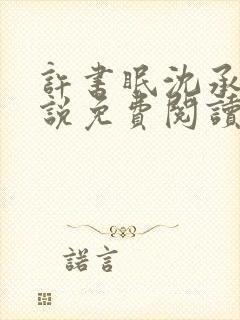 許書眠沈承
說免費閱讀
諾言